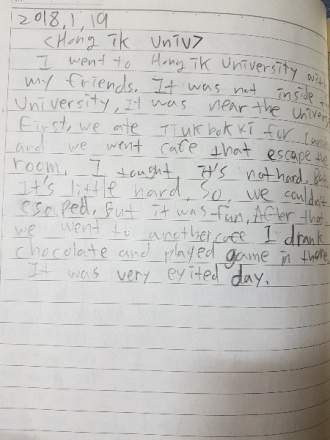 2018.1.19
<Hong ik Univ>
I went to Hongik University with
my friends. It was not inside the
University, It was near the Univer
First, we ate TTUKbokki for lunch
and we went cafe that escape the
room. I tought, it's not hard, but
It's little hard, So, we couldn't
escped. But it was fun, After that
we went to another cafe I drank
chocolate and played game in there
It was very exited day.